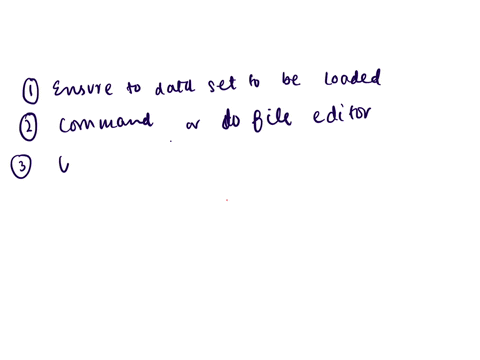 ① Ensure to data set to be loaded
② Command or do file editor
③